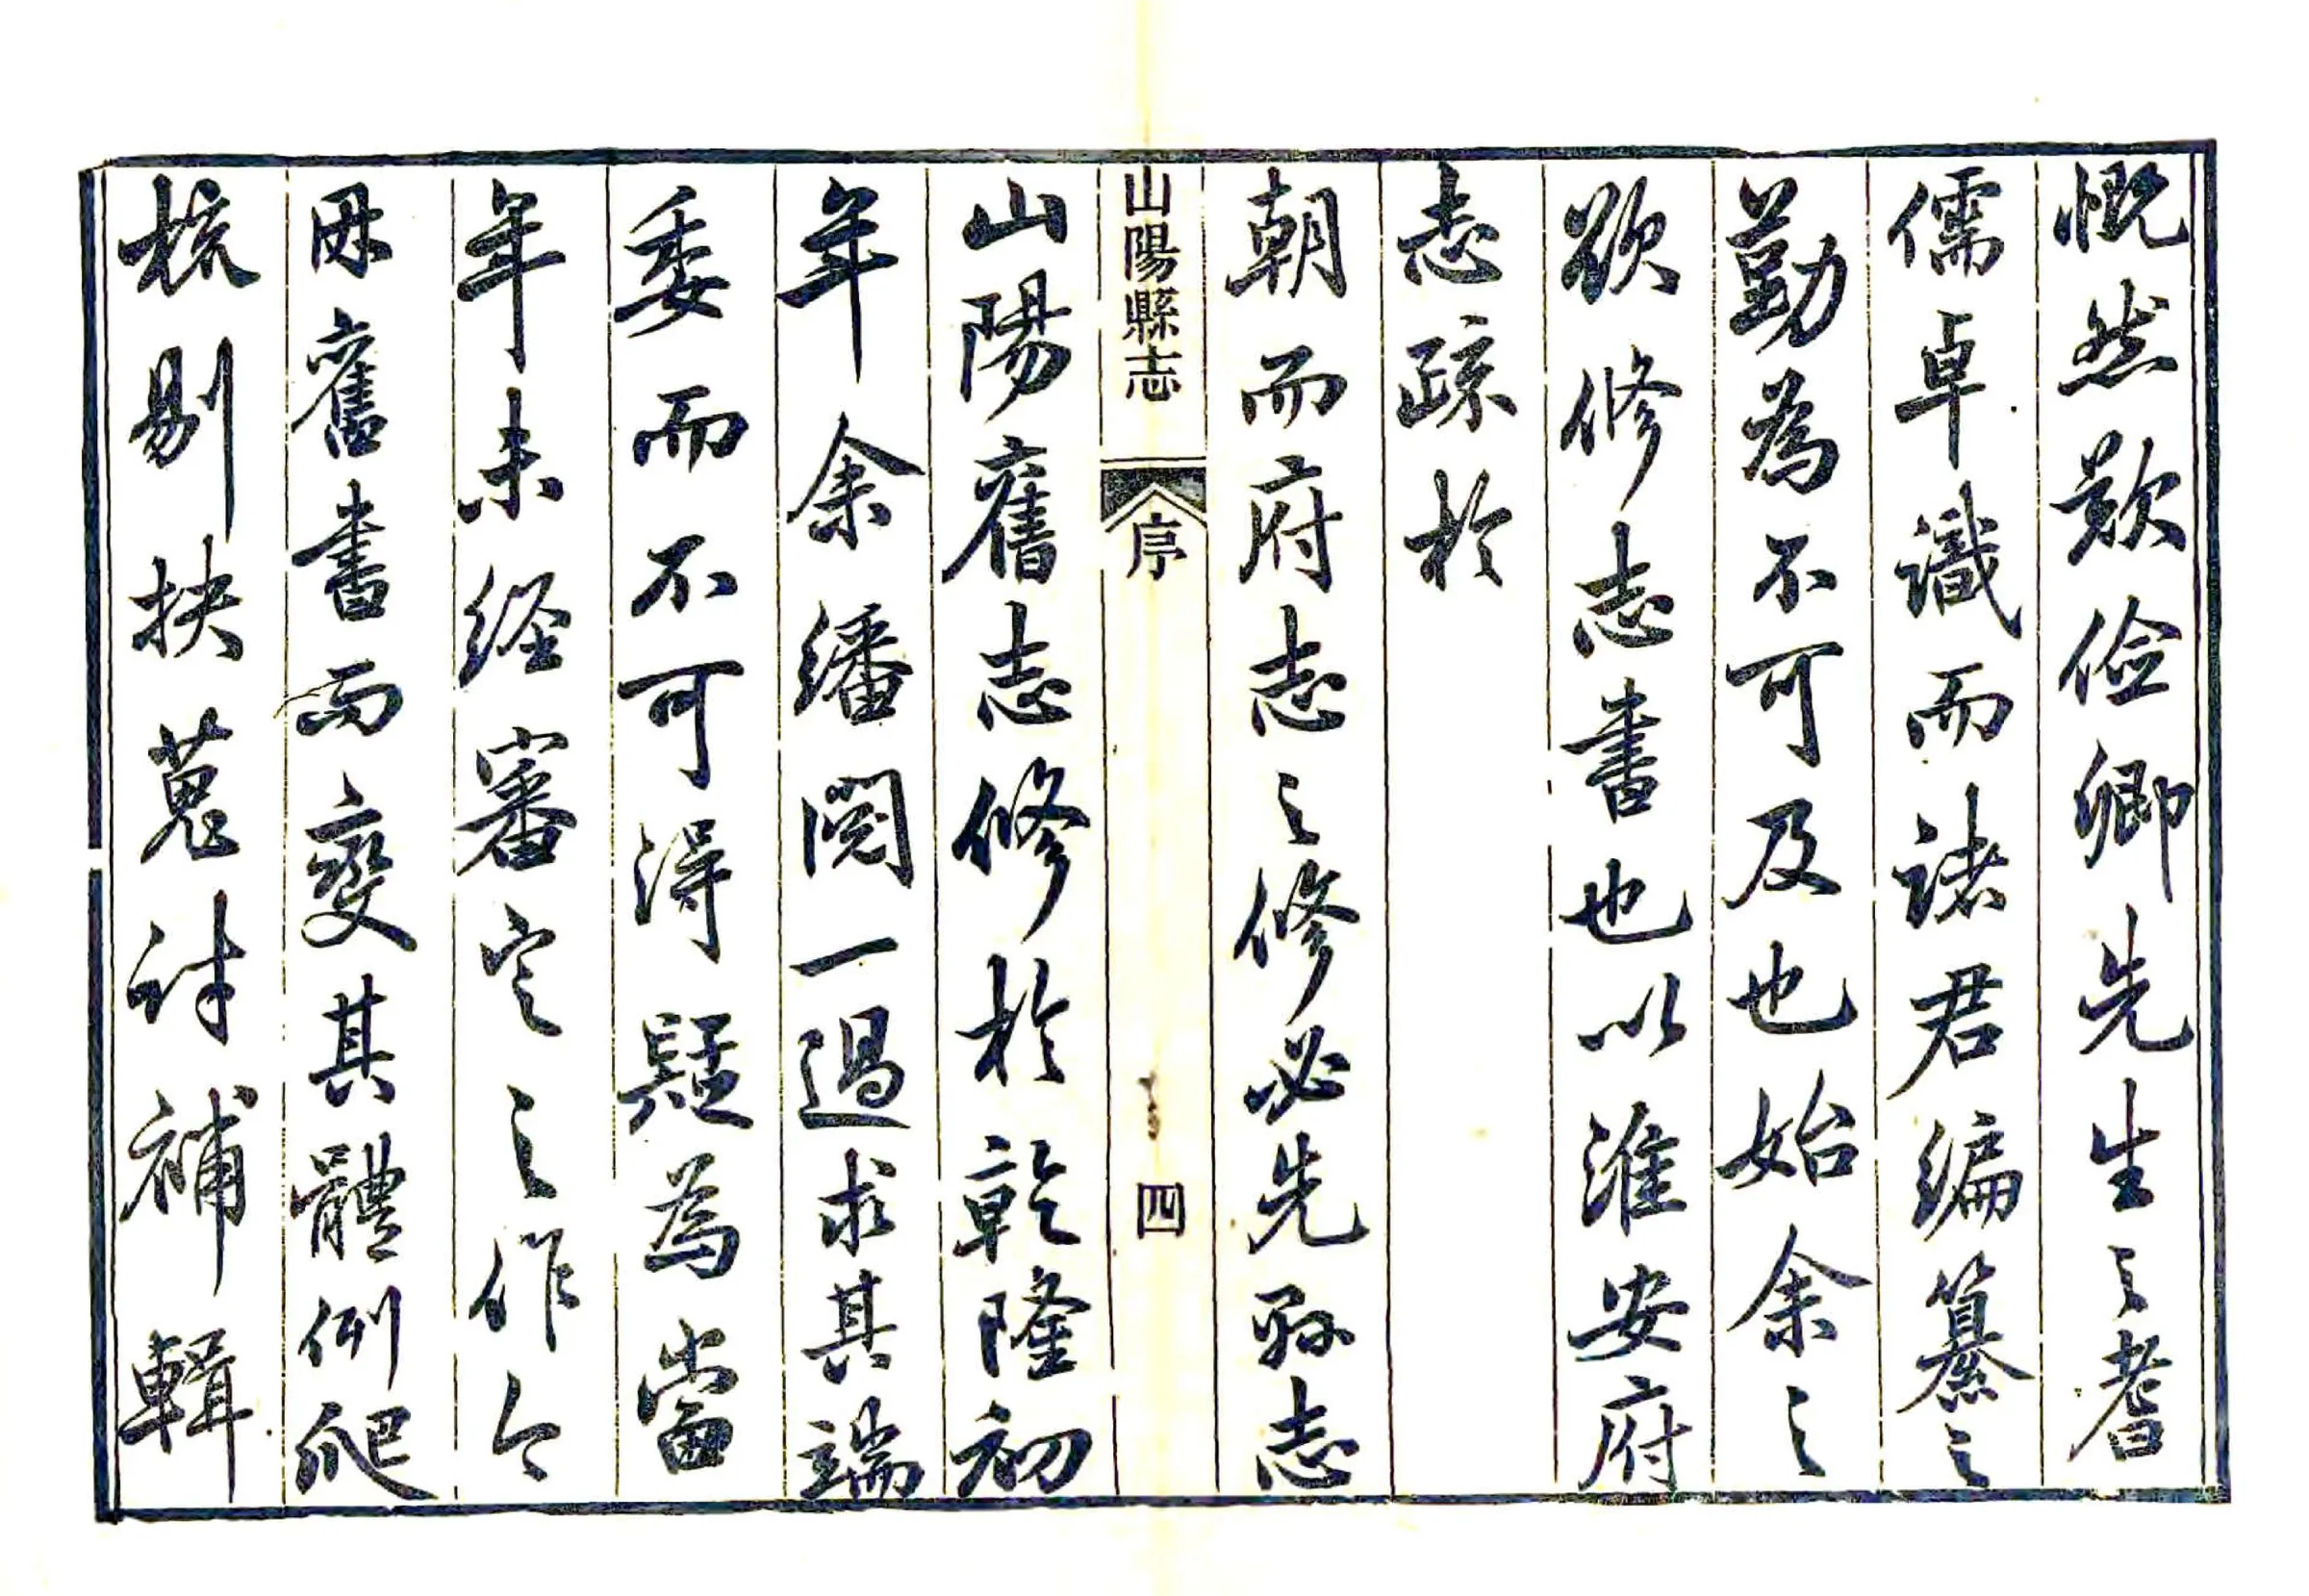 慨然歎儉卿先生之耆
儒卓識而諸君編纂之
勤為不可及也始余之
欲修志書也以淮安府
志疏於
朝而府志之修必先縣志
山陽縣志
序
四
山陽舊志修於乾隆初
年余繙閱一過求其端
委而不可得疑為當
年未經審定之作今
毋舊書而變其體例爬
梳剔抉蒐討補輯